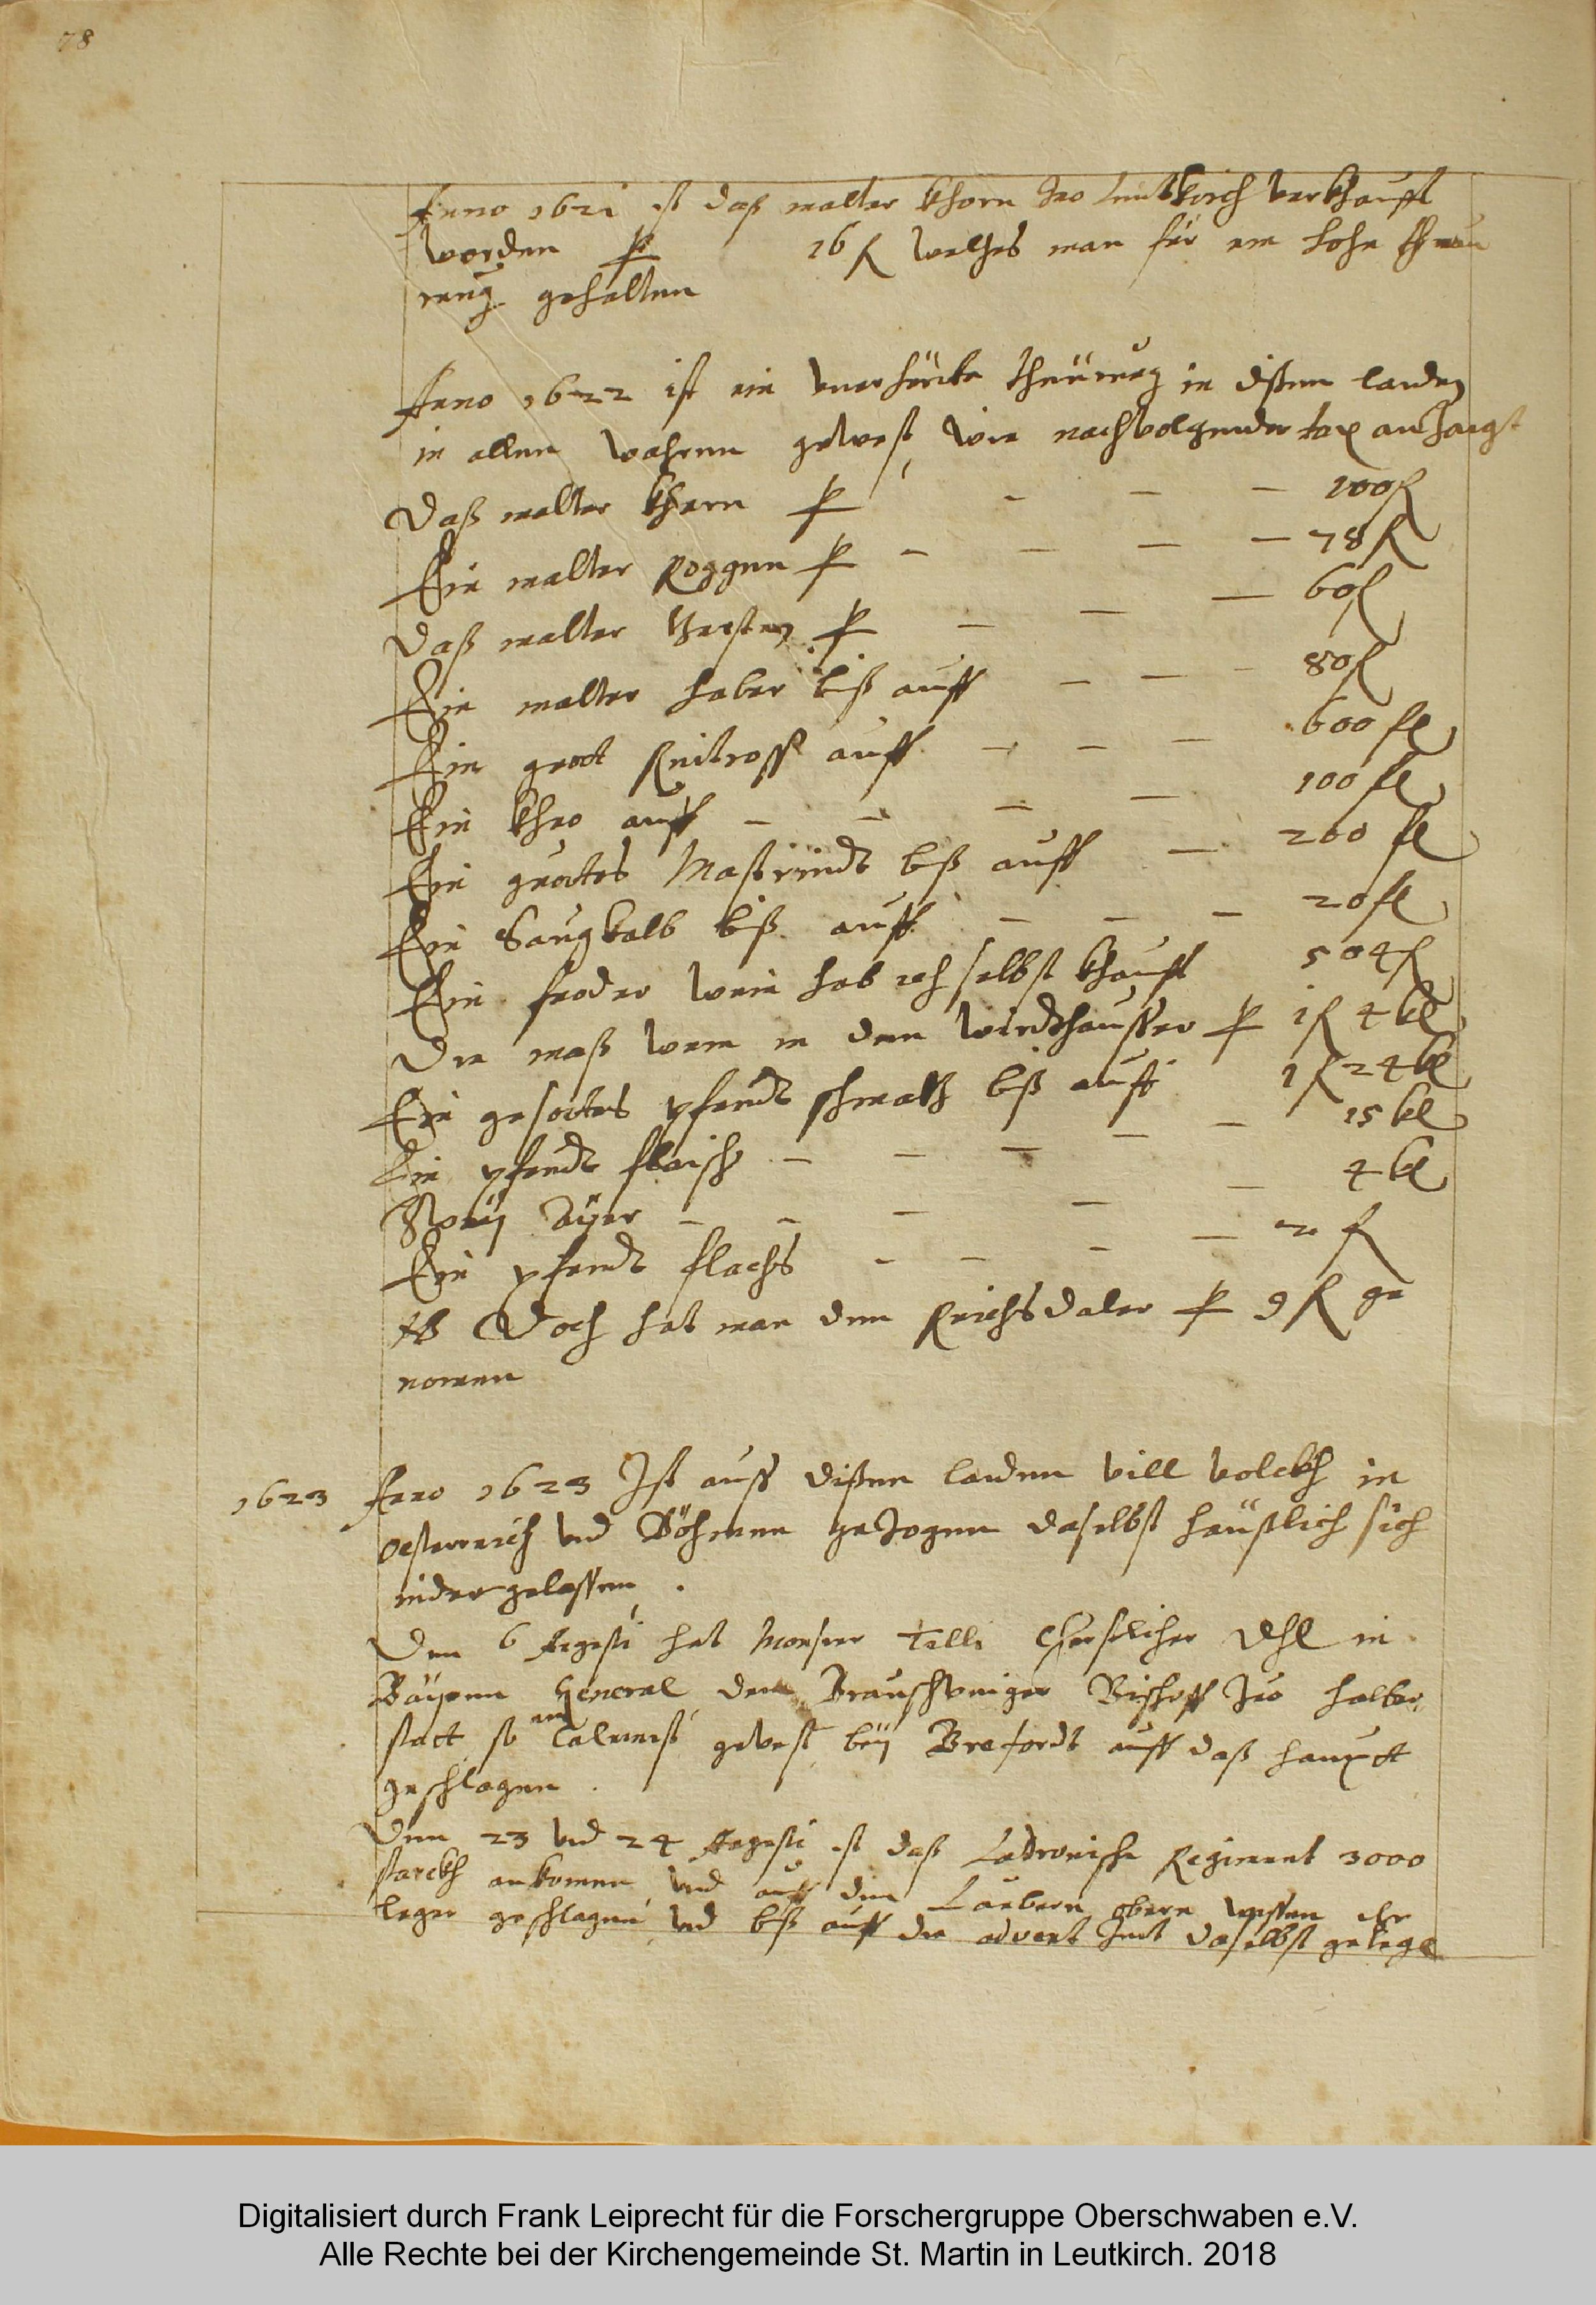 78
Anno 1621 ist daß malter khorn zuo Leutkirch verkhaufft
worden p 16 fl welches man für ein hohe theu
rung gehalten
Anno 1622 ist ein unerhörte theürung in dißen landen
in allen wahren gewest, wie nachvolgender tax anzaigt
Daß malter khern p — — — 100 fl
Ein malter Roggen p — — — — 78 fl
Daß malter Gersten p — — — 60 fl
Ein malter haber biß auff — — — 80 fl
Ein guot Reitross auff — — — 600 fl
Ein khuo auff — — — — 100 fl
Ein guottes Mastrindt biß auff — 200 fl
Ein Saugkalb biß auff — — — 20 fl
Ein fuoder wein hab ich selbst khaufft 504 fl
Die maß wein in den wirdtsheusser p 1 fl 4 kl
Ein gesottes pfundt schmaltz biß auff 1 fl 24 kl
Ein pfundt flaisch — — — — — 15 kl
Zwey Ayer — — — — — 4 kl
Ein pfundt flachs — — — — 2 fl
NB Doch hat man den Reichsdaler p 9 fl ge
nomen
1623 Anno 1623 Ist auss dißen landen vill volckh in
Oesterreich und Böhmen gezogen daselbst häußlich sich
nidergelassen.
Den 6 Augusti hat Monsier Tilli Churfürstlicher in
Bayern General den Braunschweiger Bischoff zuo Halber
statt so ein Calvinist gewest bey auff daß haupt
geschlagen.
Den 23 und 24 Augusti ist daß Ladronische Regiment 3000
starckh ankomen und auff den obern wissen ihr
leger geschlagen und biß auff die advent zeit daselbst gelege
Digitalisiert durch Frank Leiprecht für die Forschergruppe Oberschwaben e.V.
Alle Rechte bei der Kirchengemeinde St. Martin in Leutkirch. 2018